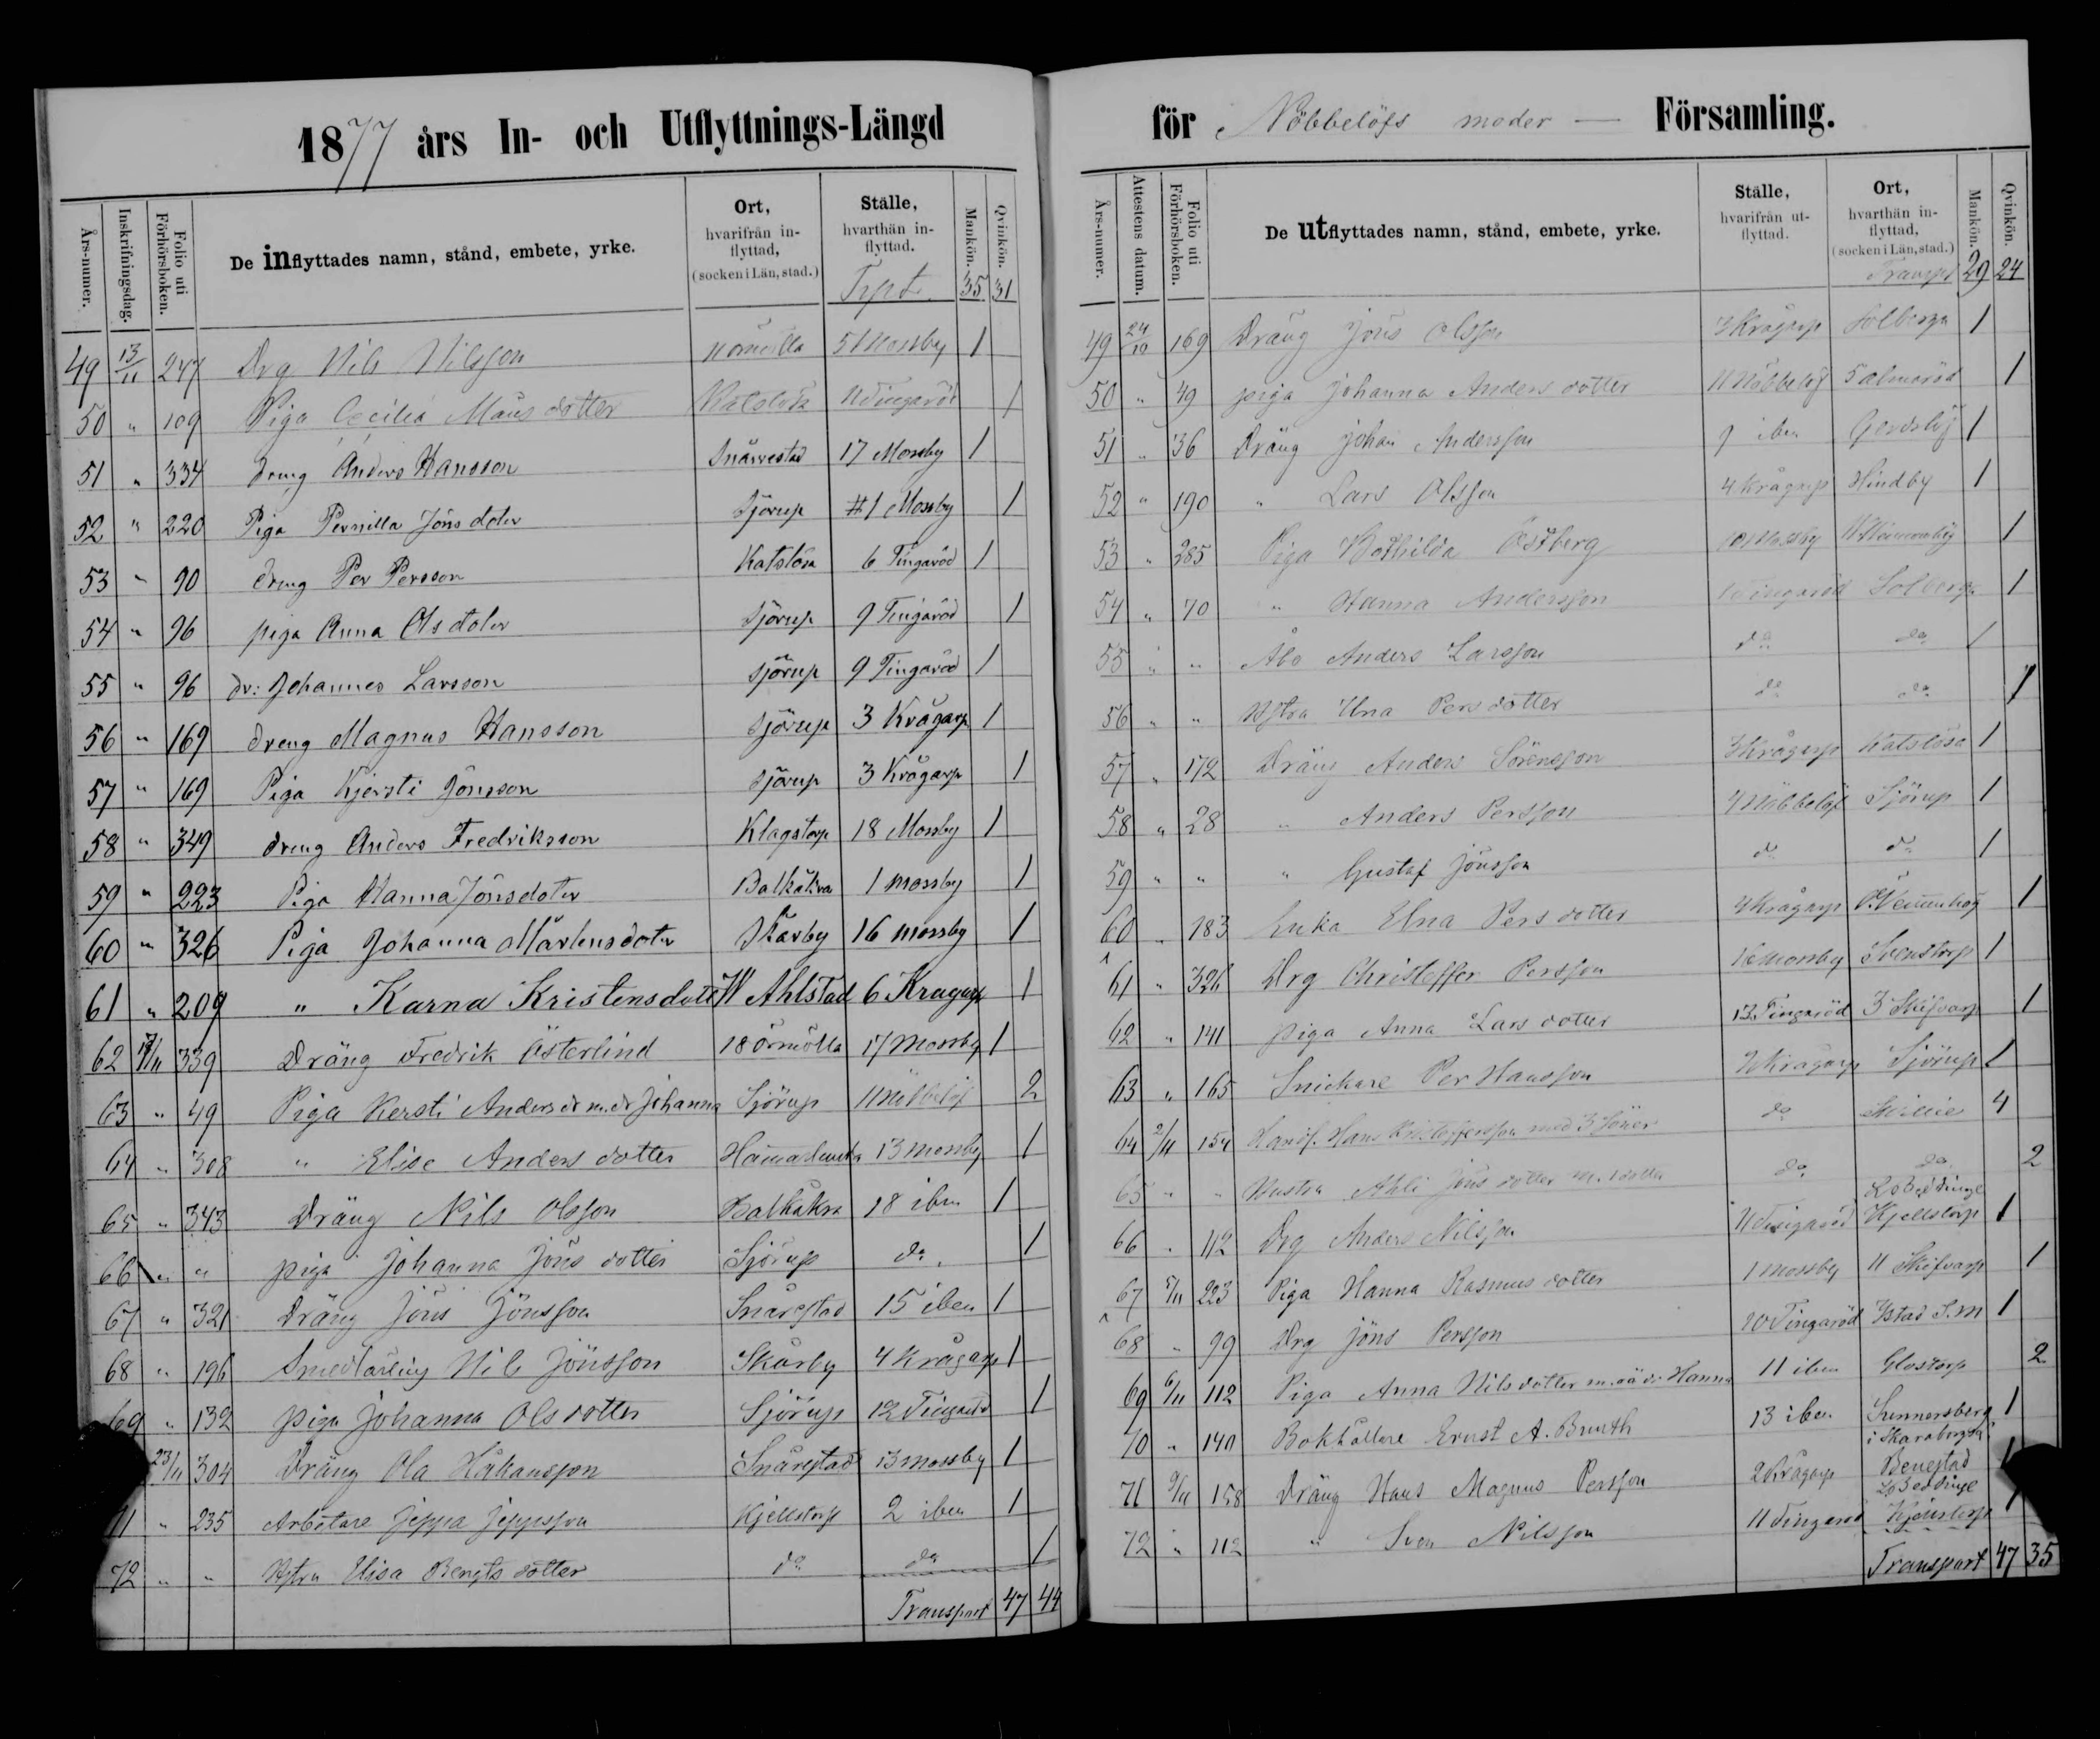 1877 års In- och Utflyttnings-Längd
Års-numer. Inskrifningsdag. Folio uti Förhörsboken. De inflyttades namn, stånd, embete, yrke. Ort, hvarifrån in-flyttad, (socken i Län, stad.) Ställe, hvarthän in-flyttad. Mankön. Qvinkön.
Trpt 35 31
49 13/11 247 Drg Nils Nilsson 51 Mossby 1
50 " 109 Piga Cecilia Månsdotter Katslösa 11 Tingaröd 1
51 " 334 dreng Anders Hansson Snårestad 17 Mossby 1
52 " 220 Piga Pernilla Jönsdoter Sjörup #1 Mossby 1
53 " 90 dreng Per Persson Katslösa 6 Tingaröd 1
54 " 96 piga Anna Olsdoter Sjörup 9 Tingaröd 1
55 " 96 dr: Johannes Larsson Sjörup 9 Tingaröd 1
56 " 169 dreng Magnus Hansson Sjörup 3 Krågarp 1
57 " 169 Piga Kjersti Jönsson Sjörup 3 Krågarp 1
58 " 349 dreng Anders Fredriksson Klagstorp 18 Mossby 1
59 " 223 Piga Hanna Jönsdoter Balkåkra 1 mossby 1
60 " 326 Piga Johanna Mårtensdoter Skårby 16 mossby 1
61 " 209 " Karna Kristensdoter W Ahlstad 6 Krugarp 1
62 17/11 339 Dräng Fredrik Österlind 18 örmölla 17 Mossby 1
63 " 49 Piga Kersti Anders dr m. dr Johanna Sjörup 11 Nöbbelöf 2
64 " 308 " Elise Anders dotter 13 mossby 1
65 " 343 Dräng Nils Olsson Balkåkra 18 ibm 1
66 " " piga Johanna Jöns dotter Sjörup do. 1
67 " 321 Dräng Jöns Jönsson Snårestad 15 ibm 1
68 " 196 Smedlärling Nils Jönsson Skårby 4 Krågarp 1
69 " 132 piga Johanna Ols dotter Sjörup 12 Tingaröd 1
23/11 304 Dräng Ola Håkansson Snårestad 13 mossby 1
71 " 235 Arbetare Jeppa Jeppsson Kjellstorp 2 ibm 1
72 " " Hstru Elisa Bengts dotter do do 1
Transport 47 44
för Nöbbelöfs moder — Församling.
Års-numer. Attestens datum. Folio uti Förhörsboken. De utflyttades namn, stånd, embete, yrke. Ställe, hvarifrån ut-flyttad. Ort, hvarthän in-flyttad, (socken i Län, stad.) Mankön. Qvinkön.
Transpt 29 24
49 24/10 169 Dräng Jöns Olsson 3 Krågarp Solberga 1
50 " 49 piga Johanna Anders dotter 11 Nöbbelöf 1
51 " 36 Dräng Johan Andersson 9 ibm Gerdslöf 1
52 " 190 " Lars Olsson 4 Krågarp Hindby 1
53 " 285 Piga Bothilda Östberg 1
54 " 70 " Hanna Andersson Tingaröd Solberga 1
55 " " Åbo Anders Larsson do do 1
56 " " Hstru Elna Pers dotter do do 1
57 " 172 Dräng Anders Sörensson 3 Krågarp Katslösa 1
58 " 28 " Anders Persson 4 Nöbbelöf Sjörup 1
59 " " " Gustaf Jönsson do do 1
60 " 183 Enka Elna Pers dotter 4 Krågarp Ö. Vemmenhög 1
61 " 326 Drg Christoffer Persson 16 mossby Svenstorp 1
62 " 141 piga Anna Lars dotter 13 Tingaröd 3 Skifvarp 1
63 " 165 Snickare Per Hansson Krågarp Sjörup 1
64 2/11 154 Hans Kristoffersson med 3 Söner do 4
65 " " Hustru Jöns dotter m. 1 dotter do do 2
66 " 112 Drg Anders Nilsson 11 Tingaröd L. o Beddinge Kjellstorp 1
67 5/11 223 Piga Hanna Rasmus dotter 1 mossby 11 Skifvarp 1
68 " 99 Drg Jöns Persson 10 Tingaröd Ystad S.m 1
69 6/11 112 Piga Anna Nils dotter m. oä dr Hanna 11 ibm Glostorp 2
70 " 140 Bokhållare Ernst A. 13 ibm Sunnersberg i Skaraborgs 1
71 9/11 158 Dräng Hans Magnus Persson 2 Krågarp Benestad 1
72 " 112 " Sven Nilsson 11 Tingaröd Lo Beddinge 1
Transport 47 35